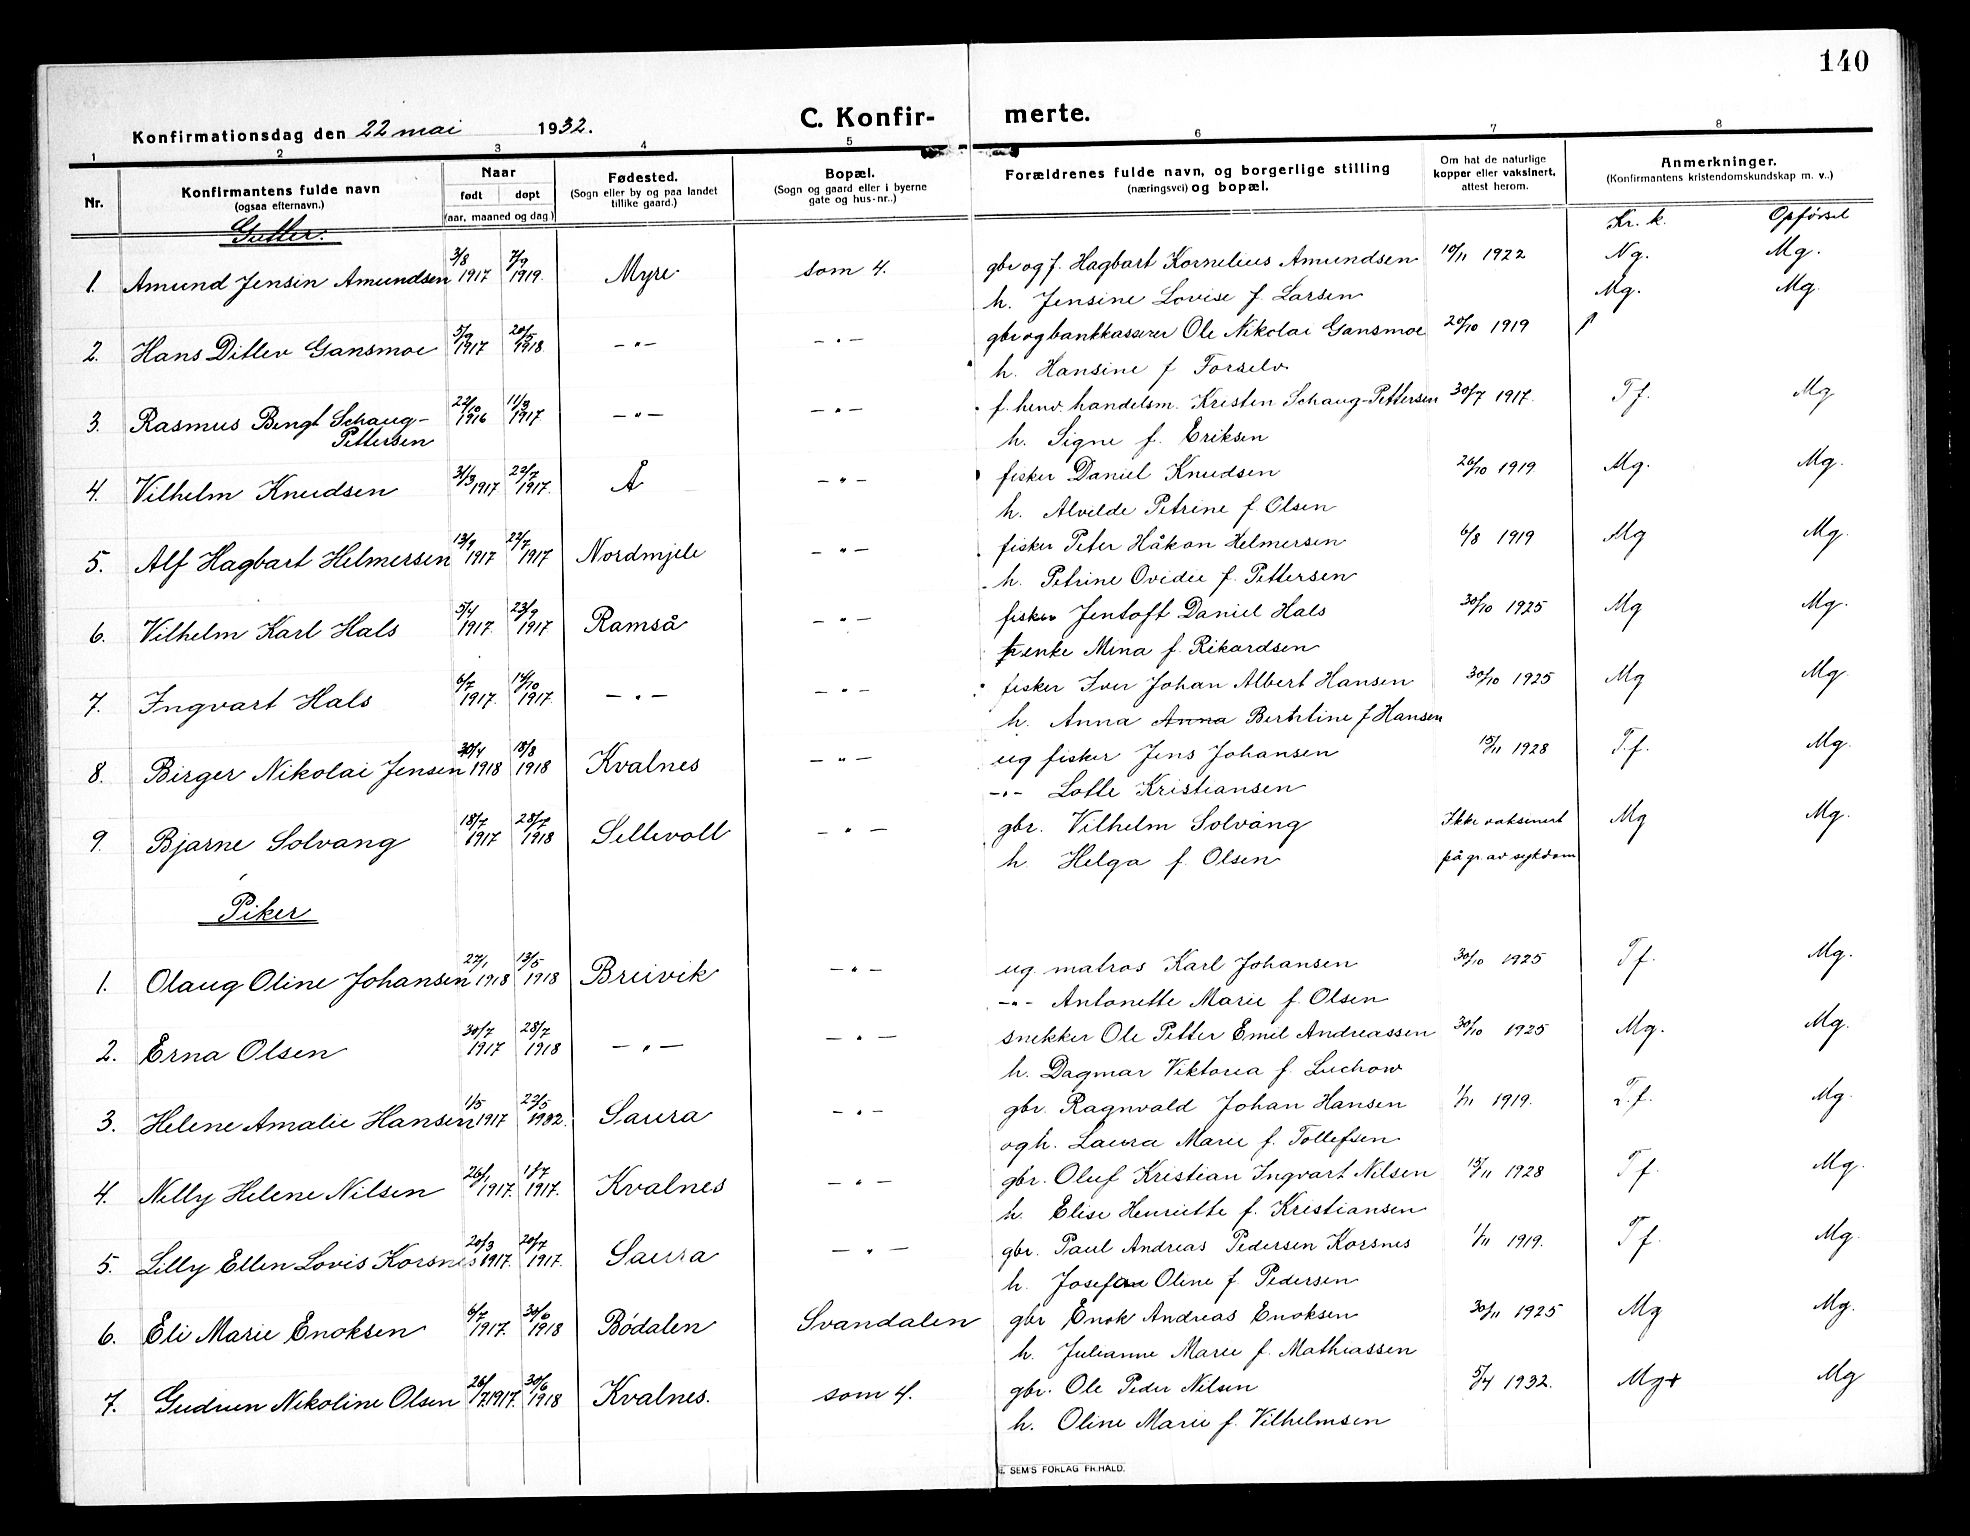 140
Konfirmationsdag den 22 mai 1932.
C. Konfir- merte.
1 2 3 4 5 6 7 8
Nr.
Konfirmantens fulde navn
(ogsaa efternavn.)
Naar
født døpt
(aar, maaned og dag)
Fødested.
(Sogn eller by og paa landet
tillike gaard.)
Bopæl.
(Sogn og gaard eller i byerne
gate og hus-nr..)
Forældrenes fulde navn, og borgerlige stilling
(næringsvei) og bopæl.
Om hat de naturlige
kopper eller vaksinert,
attest herom.
Anmerkninger.
(Konfirmantens kristendomskundskap m. v..)
Gutter. Kr. k. Opførsel
1. Amund Jensin Amundsen 3/8 1917 7/9 1919. Myre som 4. gbr og f. Hagbart Kornelius Amundsen 10/11 1922 Ng. Mg.
h. Jensine Lovise f. Larsen Mg. Mg.
2. Hans Ditlev Gansmoe 5/9 1917 20/5 1918 -"- -"- gbr og bankkasserer Ole Nikolai Gansmoe 20/10 1919
h. Hansine f Forselv
3. Rasmus Bengt Schaug- 22/10 1916 11/3 1917 -"- -"- f. henv. handelsm. Kristen Schaug-Pettersen 30/7 1917. Tf. Mg
Pettersen h. Signe f. Eriksen
4. Vilhelm Knudsen 31/3 1917 22/7 1917. Å -"- fisker Daniel Knudsen 26/10 1919 Mg. Mg.
h. Alvilde Petrine f. Olsen
5. Alf Hagbart Helmersen 13/9 1917 22/7 1917 Nordmjele -"- fisker Peter Håkon Helmersen 6/8 1919 Mg Mg.
h. Petrine Ovidie f. Pettersen
6. Vilhelm Karl Hals 5/4 1917. 23/9 1917 Ramså -"- fisker Jentoft Daniel Hals 30/10 1925 Mg Mg.
enke Mina f. Rikardsen
7. Ingvart Hals 6/7 1917. 14/10 1917. -"- -"- fisker Iver Johan Albert Hansen 30/10 1925 Mg Mg.
h. Anna Anna Bertine f Hansen
8. Birger Nikolai Jensen 30/4 1918 18/8 1918 Kvalnes -"- ug fisker Jens Johansen 15/11 1928 T.f. Mg.
-"- Lotte Kristiansen
9. Bjarne Solvang 18/7 1917 28/7 1918 Sellevoll -"- gbr. Vilhelm Solvang Ikke vaksinert Mg Mg.
h Helga f. Olsen på gr. av sykdom
Piker
1. Olaug Oline Johansen 27/1 1918 13/5 1918 Breivik -"- ug. matros Karl Johansen 30/10 1925 Tf. Mg.
-"- Antonette Marie f. Olsen
2. Erna Olsen 30/7 1917 28/7 1918 -"- -"- snekker Ole Petter Emil Andreassen 30/10 1925 Mg. Mg.
h. Dagmar Viktoria f. Luchow
3. Helene Amalie Hansen 1/5 1917 22/5 1932. Saura -"- gbr. Ragnvald Johan Hansen 1/11 1919. T.f. Mg.
og h. Laura Marie f. Tollefsen
4. Nelly Helene Nilsen 26/1 1917. 1/7 1917. Kvalnes -"- gbr. Oluf Kristian Ingvart Nilsen 15/11 1928 Tf. Mg.
h. Elise Henriette f. Kristiansen
5. Lilly Ellen Lovis Korsnes 20/3 1917. 20/7 1917. Saura -"- gbr. Paul Andreas Pedersen Korsnes 1/11 1919. Tf. Mg.
h. Josefine Oline f. Pedersen
6. Eli Marie Enoksen 6/7 1917. 30/6 1918 Bödalen Svandalen gbr Enok Andreas Enoksen 30/11 1925 Mg Mg.
h. Julianne Marie f. Mathiassen
7. Gudrun Nikoline Olsen 26/7 1917. 30/6 1918 Kvalnes. som 4. gbr. Ole Peder Nilsen 5/4 1932. Mg+ Mg
h. Oline Marie f. Vilhelmsen
SEM'S FORLAG FR.HALD.